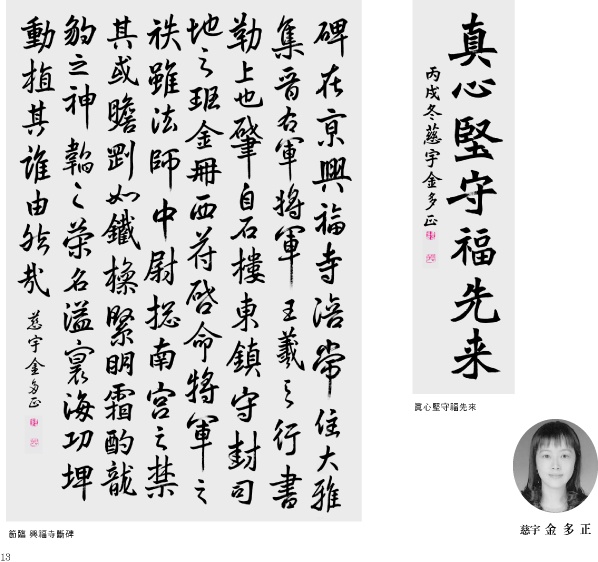 真心堅守福先来
丙戌冬慈宇金多正
碑在京興福寺陪常住大雅
集晉右軍將軍王羲之行書
勒上也肇自石樓東鎮守封司
地之班金冊西苻啓命將軍之
秩雖法師中尉摠南宮之禁
其或瞻如鐵操緊明霜酌龍
豹之神韜之榮名溢寰海功埤
動植其誰由然哉
慈宇金多正
眞心堅守福先來
節臨 興福寺斷碑
慈宇 金多正
13